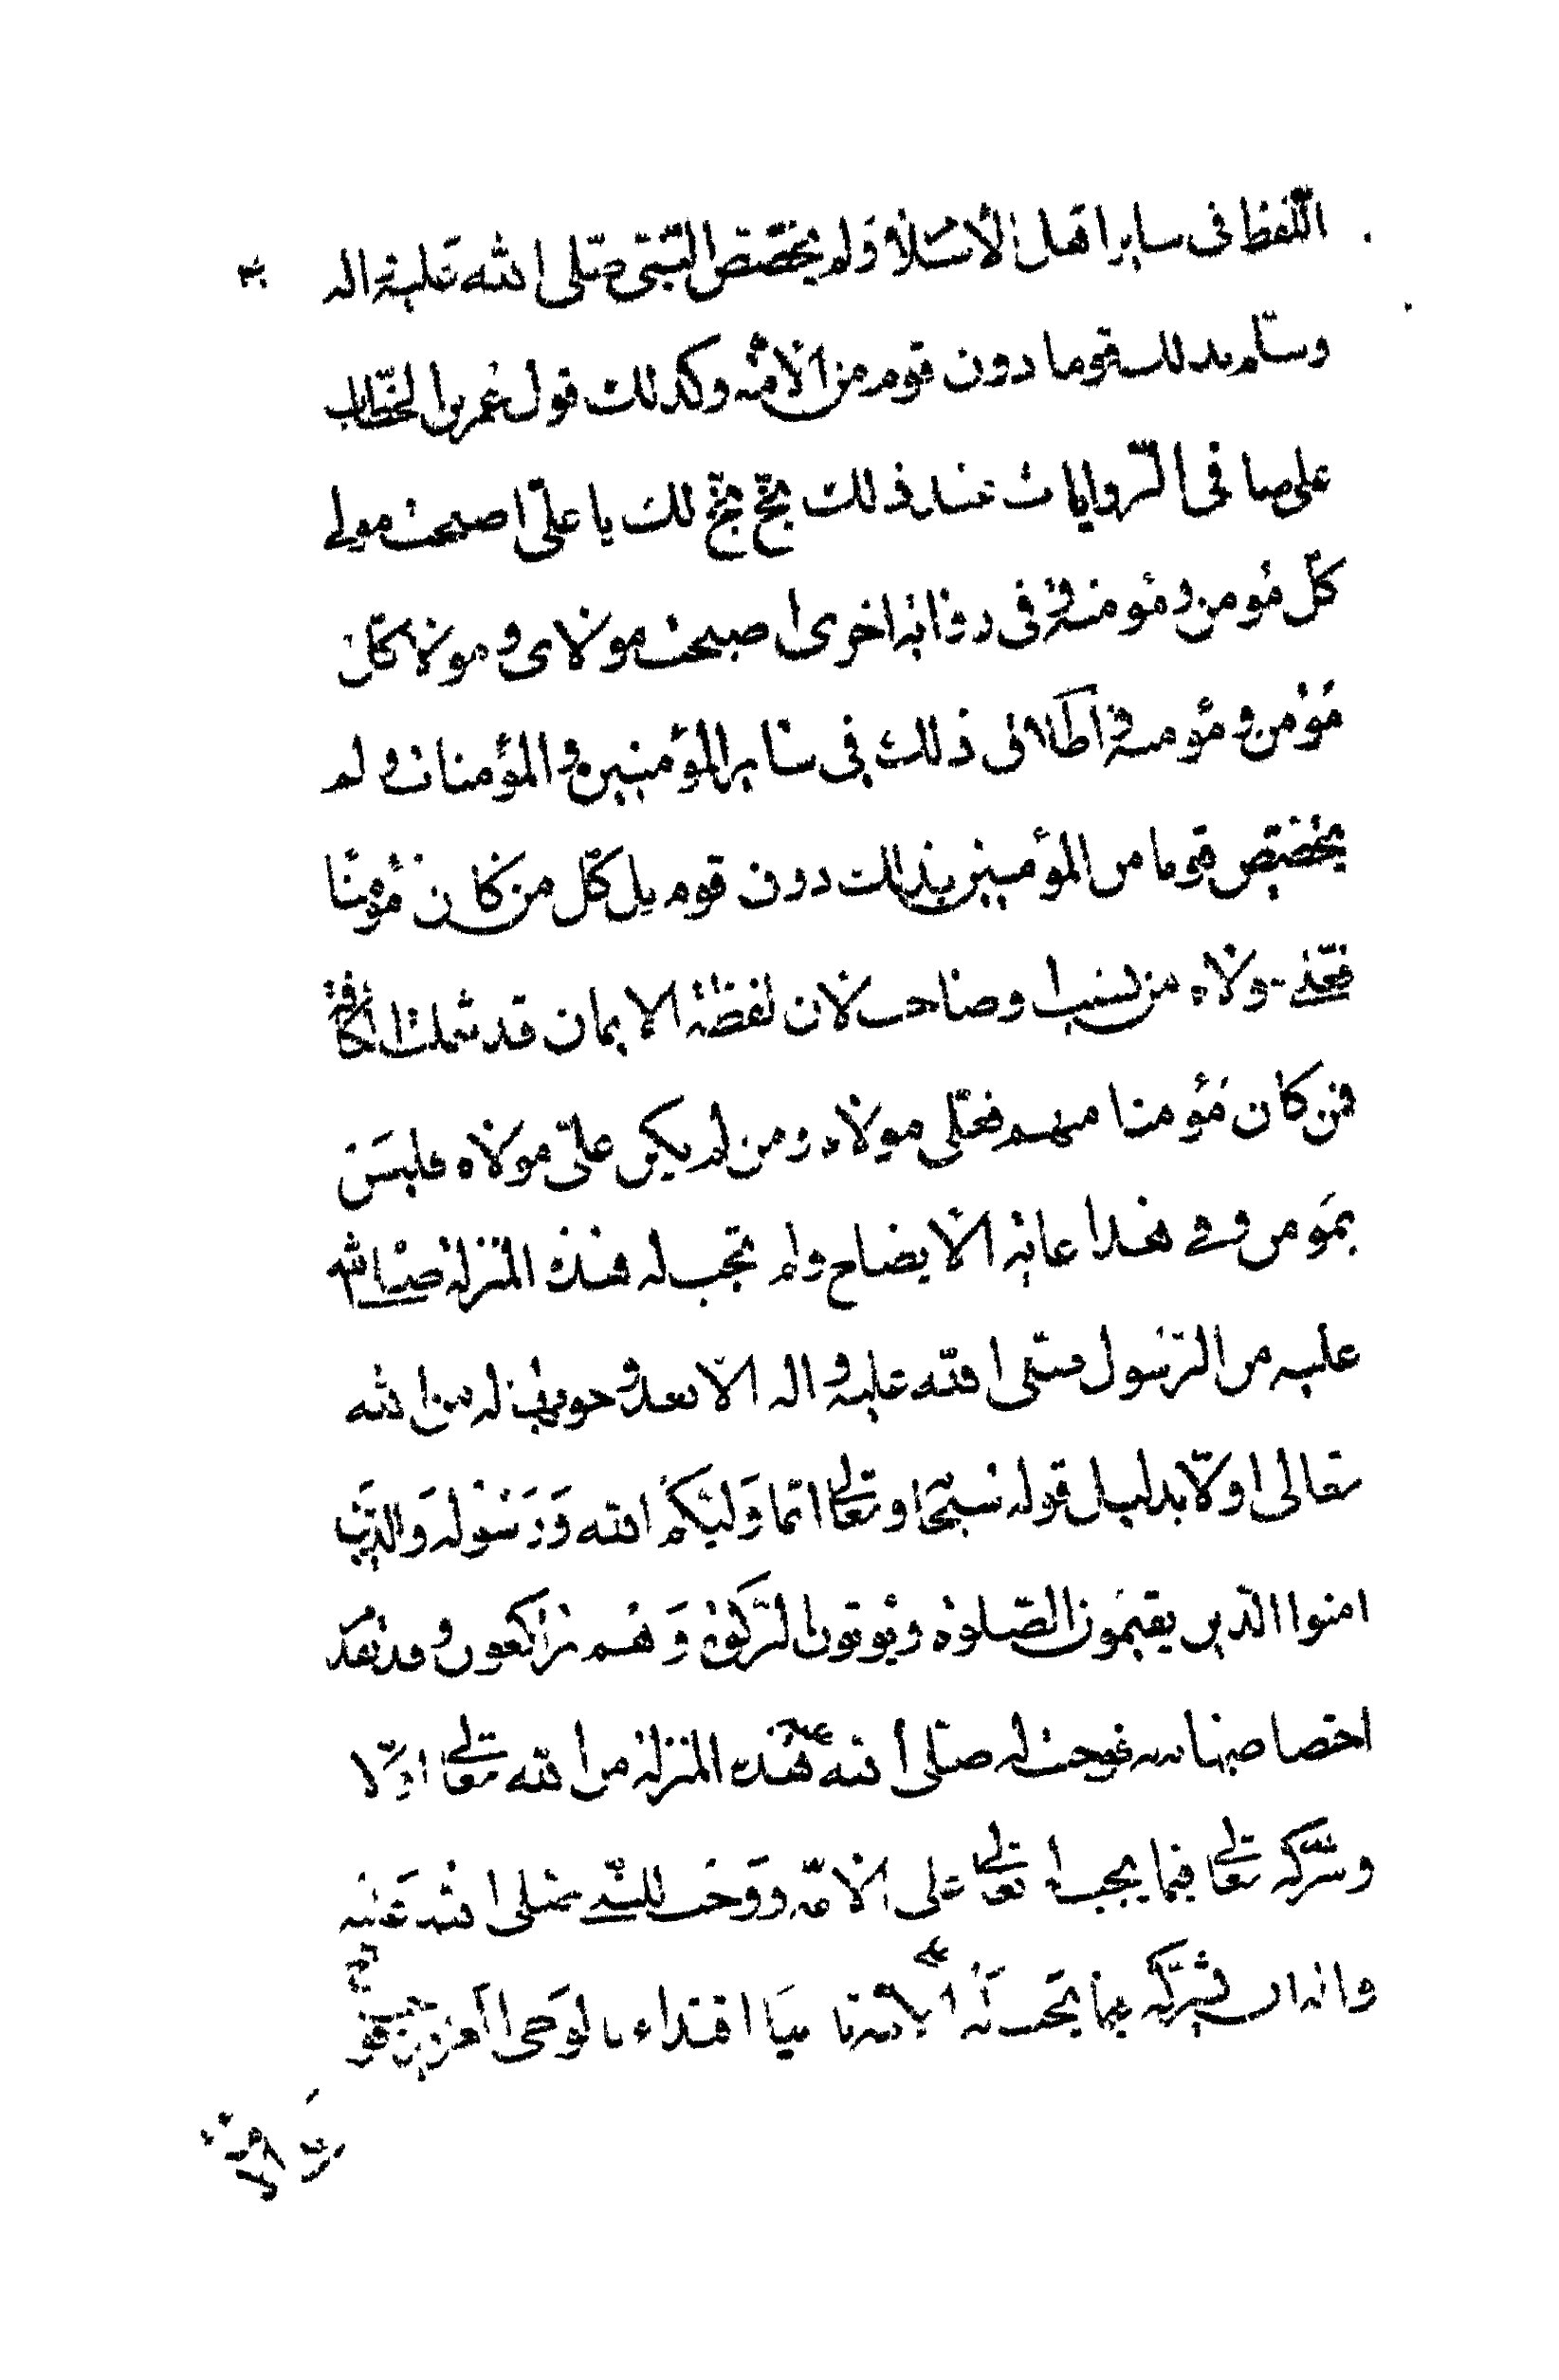 اللفظ فى ساير اهل الاسلام ولم يخصص النبى صلى الله عليه واله
وسلم بذلك قوما دون قوم من الامة وكذلك قول عمر بن الخطاب
على ما فى الروايات عند ذلك بخّ بخّ لك يا علىّ اصبحت مولى
كلّ مؤمن ومؤمنة وفى رواية اخرى اصبحت مولاى ومولا كلّ
مؤمن ومؤمنة اطلاق ذلك فى ساير المؤمنين والمؤمنات ولم
يخصص قوما من المؤمنين بذلك دون قوم بل كلّ من كان مؤمنًا
فعلى مولاه من نسب او صاحب لان لفظة الايمان قد شملت الكافة
فمن كان مؤمنا منهم فعلى مولاه ومن لم يكن علىّ مولاه فليس
بمؤمن وفى هذا غاية الايضاح ولم تجب له هذه المنزلة صلى الله
عليه من الرسول صلى الله عليه واله الا بعد وجوبها له من الله
تعالى اولا بدليل قوله سبحانه وتعالى انما وليكم الله ورسوله والذين
امنوا الذين يقيمون الصلوة ويؤتون الزكوة وهم راكعون وقد تقدم
اختصاصها به فوجبت له صلى الله عليه هذه المنزلة من الله تعالى اولا
وشركه تعالى فيما يجب له تعالى على الامة ووجب للنبى صلى الله عليه
واله ان يشركه فيما يجب له على الامة اقتداء بالوحى